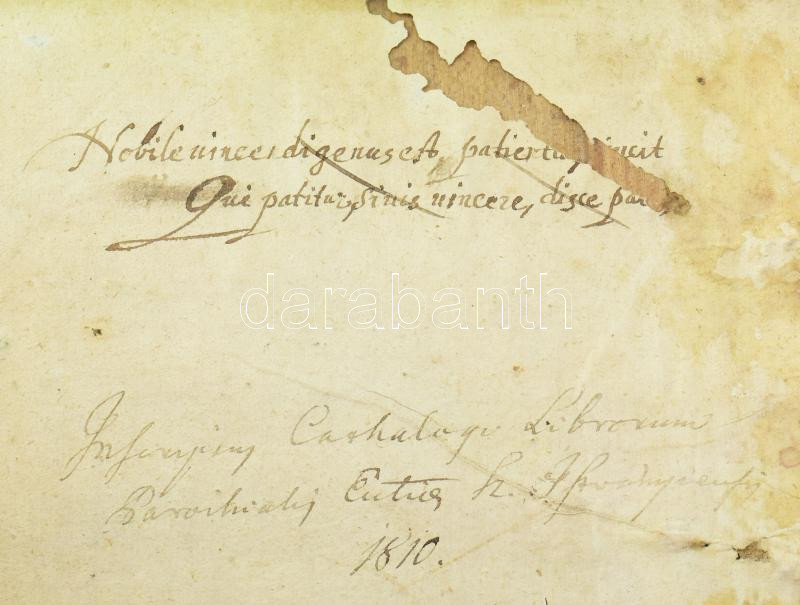 Nobile vincendi genus est, patientia vincit
Qui patitur, si vis vincere, disce pati
darabanth
Inscriptus Cathalogo Librorum
Parochialis
1810.